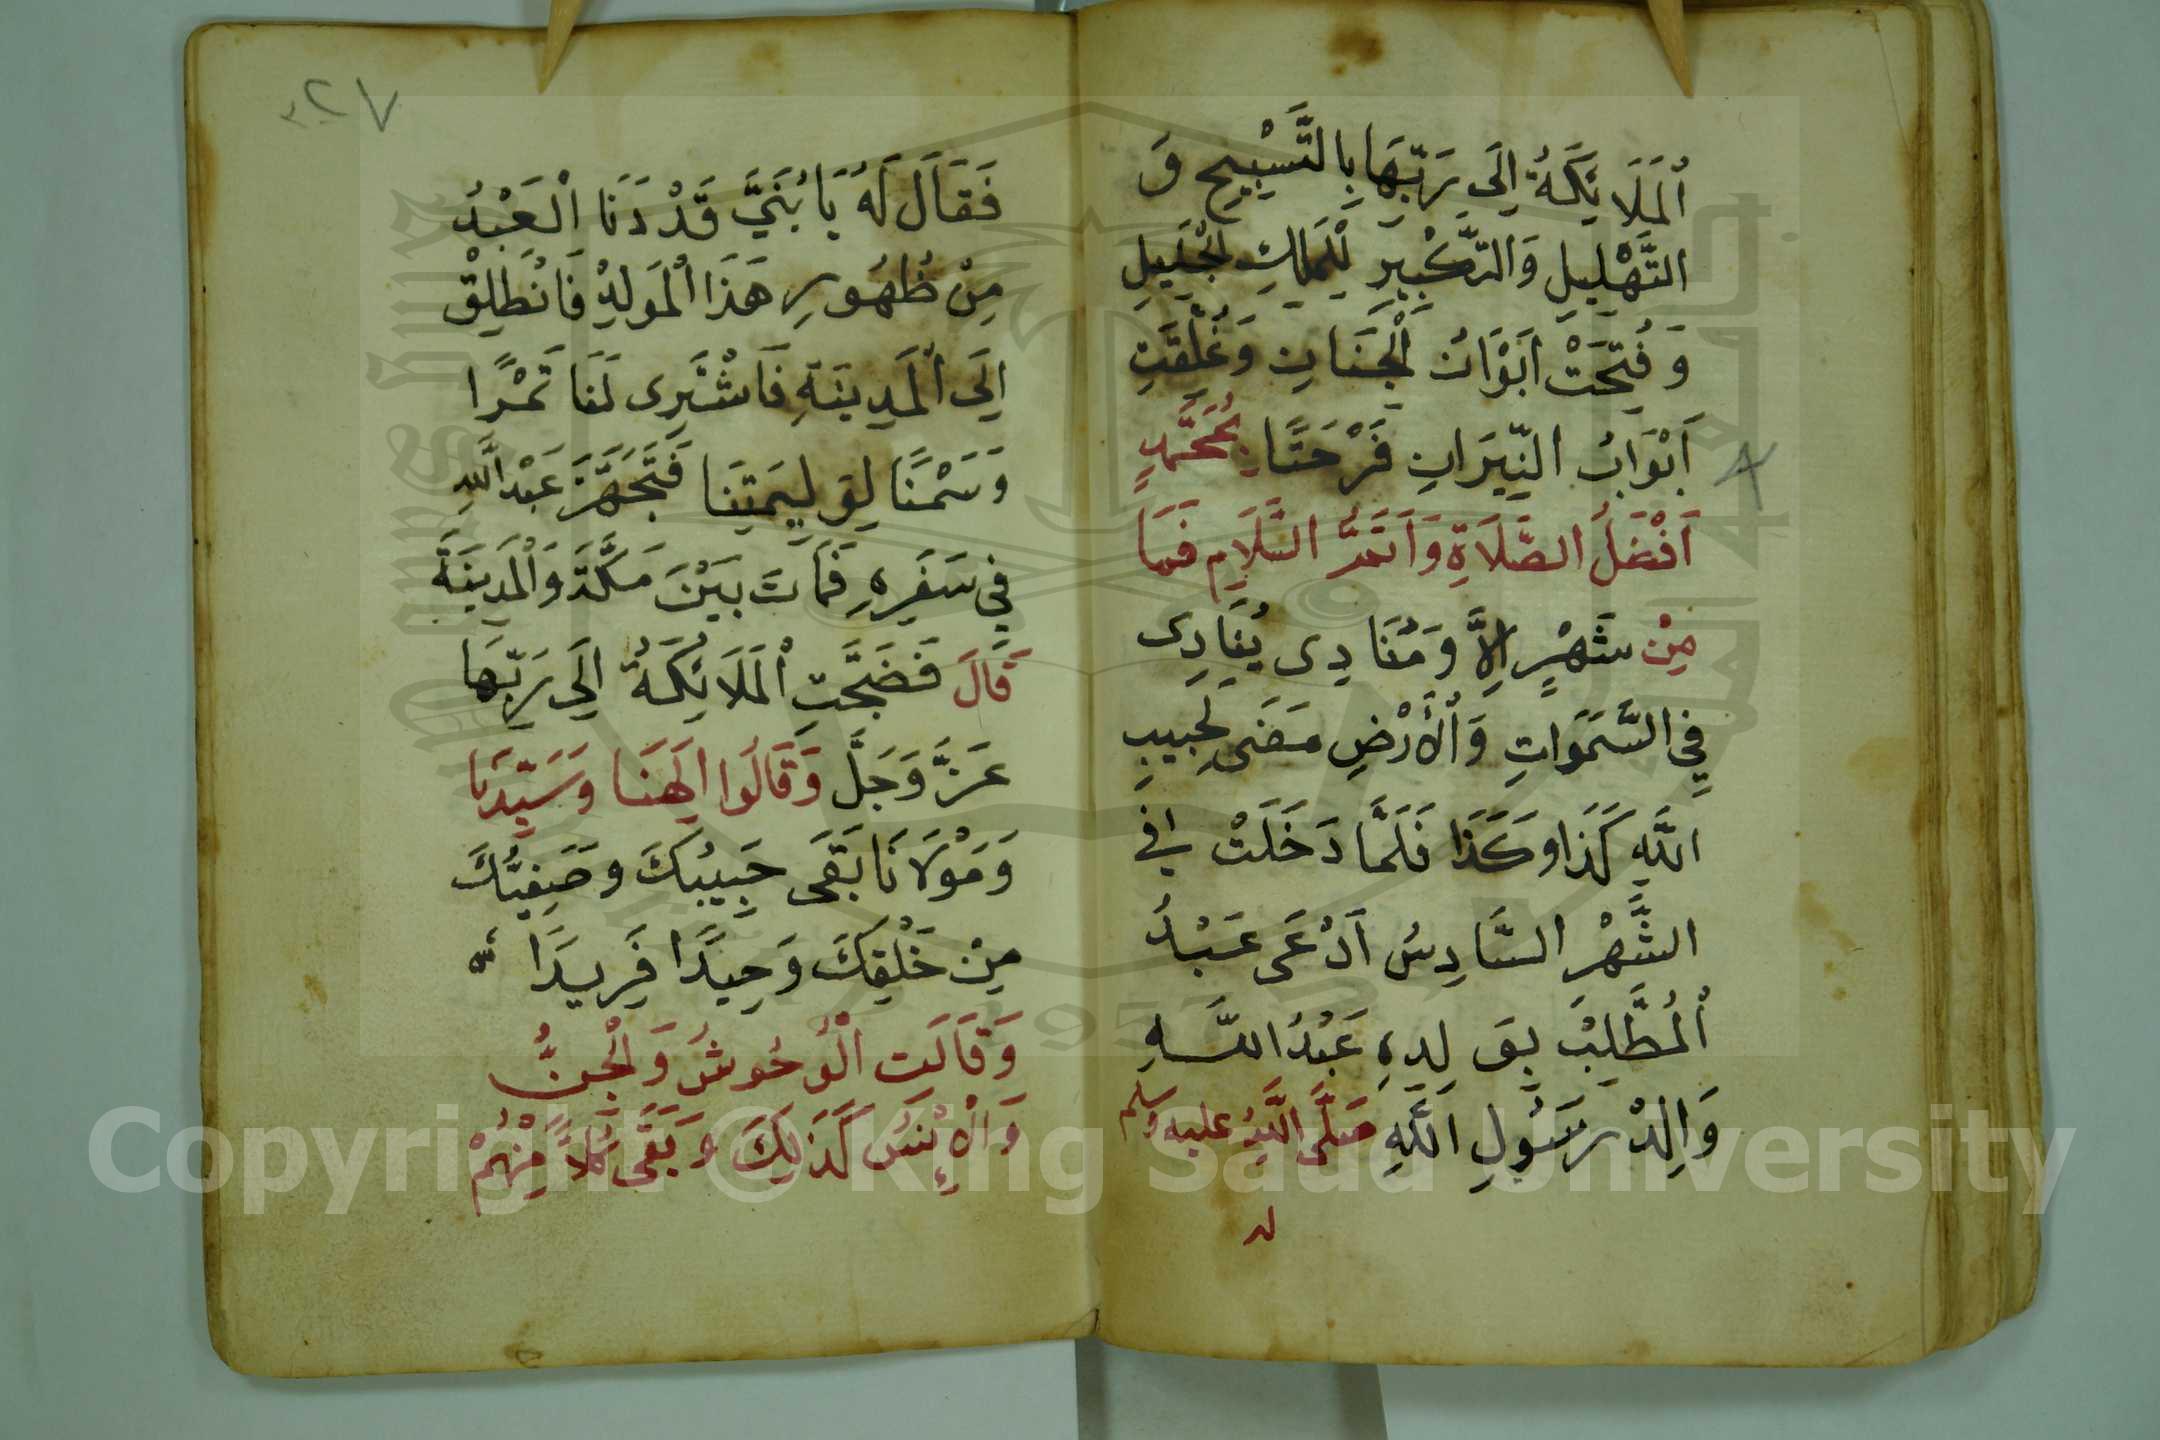 ٱلْمَلَائِكَةُ إِلَى رَبِّهَا بِالتَّسْبِيحِ وَ
التَّهْلِيلِ وَالتَّكْبِيرِ لِلْمَلِكِ الْجَلِيلِ
وَفُتِحَتْ أَبْوَابُ الْجَنَانِ وَغُلِّقَتْ
أَبْوَابُ النِّيرَانِ فَرْحَتًا بِمُحَمَّدٍ
أَفْضَلُ الصَّلَاةِ وَأَتَمُّ السَّلَامِ فَمَا
مِنْ شَهْرٍ إِلَّا وَمُنَادِى يُنَادِى
فِي السَّمَوَاتِ وَٱلْأَرْضِ مَضَى لِحَبِيبِ
اللَّهِ كَذَا وَكَذَا فَلَمَّا دَخَلَتْ فِي
الشَّهْرِ السَّادِسُ اَدْعَى عَبْدُ
ٱلْمُطَّلِبْ بِوَلِدِهِ عَبْدُ اللَّهِ
وَالِدْ رَسُولِ اللَّهِ صَلَّى اللَّهُ عليه وسلم
فَقَالَ لَهُ يَا بُنَيَّ قَدْ دَنَا الْعَبْدُ
مِنْ ظُهُورِ هَذَا ٱلْمَولِدْ فَانْطَلِقْ
إِلَى ٱلْمَدِينَةِ فَاشْتَرِى لَنَا تَمْرًا
وَسَمْنًا لِوَلِيمَتِنَا فَتَجَهَّزَ عَبْد اللَّهِ
فِي سَفَرِهِ فَمَاتَ بَيْنَ مَكَّةَ وَٱلْمَدِينَةَ
قَالَ فَضَجَّتِ ٱلْمَلَائِكَةُ إِلَى رَبِّهَا
عَزَّ وَجَلَّ وَقَالُوا إِلَهَنَا وَسَيِّدَنَا
وَمَوْلَانَا بَقَى حَبِيبُكَ وَصَفِيُّكَ
مِنْ خَلْقِكَ وَحِيدًا فَرِيدَا
وَقَالَت الْوُحُوشُ وَالْجِنُّ
وَالْإِنْسُ كَذَلِكَ وَبَقَى كُلاً مِنْهُمْ
Copyright © King Saud University
1957